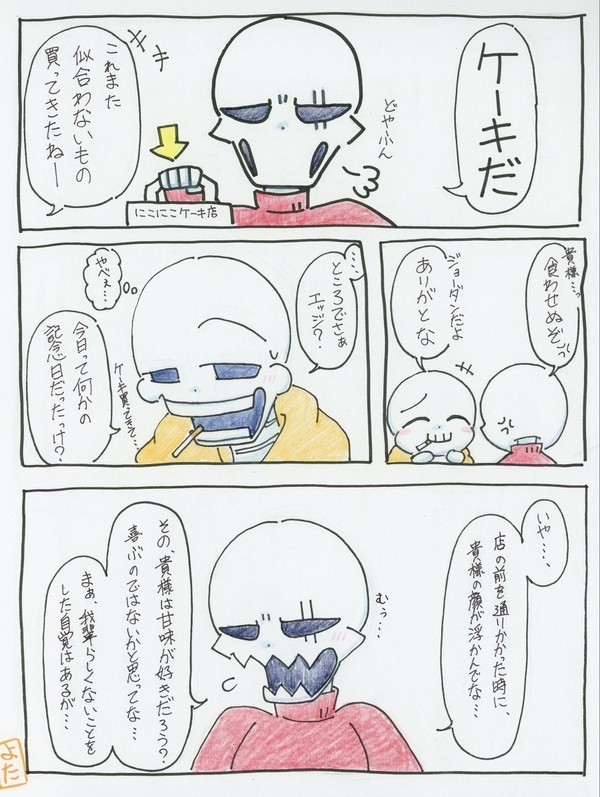 ケーキだ
どやふん
これまた
似合わないもの
買ってきたねー
にこにこケーキ店
貴様…っ
食わせぬぞっっ
ジョーダンだよ
ありがとな
…、
ところでさぁ
エッジ？
やべぇ…
ケーキ買ってきて…
今日って何かの
記念日だったっけ？
いや…、
店の前を通りかかった時に、
貴様の顔が浮かんでな…
むぅ…
その、貴様は甘味が好きだろう？
喜ぶのではないかと思ってな…
まぁ、我輩らしくないことを
した自覚はあるが…
よた